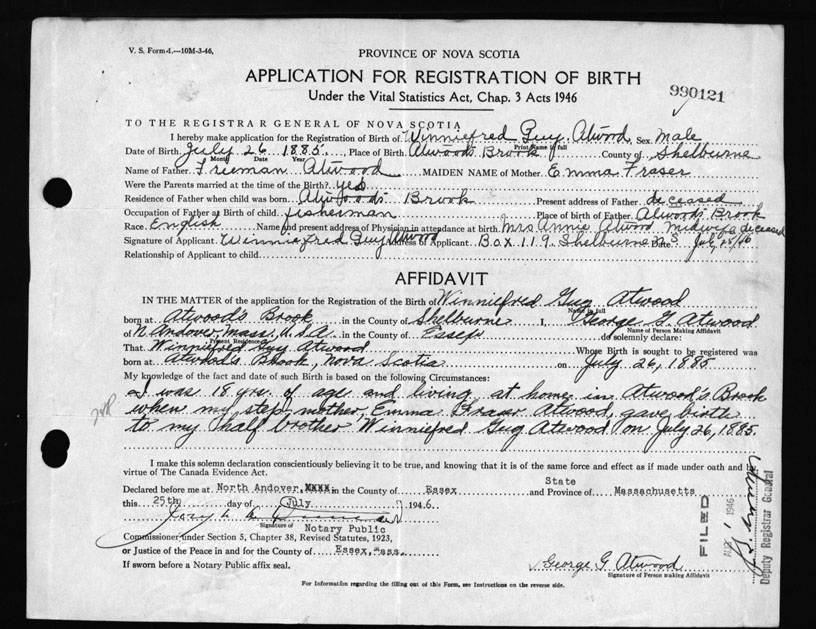 V. S. Form-1.---10M-3-46.
PROVINCE OF NOVA SCOTIA
APPLICATION FOR REGISTRATION OF BIRTH
Under the Vital Statistics Act, Chap. 3 Acts 1946
990121
TO THE REGISTRAR GENERAL OF NOVA SCOTIA
I hereby make application for the Registration of Birth of Winniefred Guy Atwood, Sex male
Print Name in full
Date of Birth July 26 1885. Place of Birth Atwoods Brook County of Shelburne
Month Date Year
Name of Father Freeman Atwood MAIDEN NAME of Mother Emma Fraser
Were the Parents married at the time of the Birth? yes
Residence of Father when child was born Atwoods Brook Present address of Father deceased
Occupation of Father at Birth of child fisherman Place of birth of Father Atwoods Brook
Race English Name and present address of Physician in attendance at birth Mrs Annie Atwood midwife deceased
Signature of Applicant Winniefred Guy Atwood Address of Applicant Box 119 Shelburne N S Date July 25/46
Relationship of Applicant to child
AFFIDAVIT
IN THE MATTER of the application for the Registration of the Birth of Winniefred Guy Atwood
Name in full
born at Atwood's Brook in the County of Shelburne I, George G. Atwood
Name of Person Making Affidavit
of N. Andover, Mass. U.S.A. in the County of Essex do solemnly declare:
Present Residence
That Winniefred Guy Atwood Whose Birth is sought to be registered was
born at Atwood's Brook, Nova Scotia on July 26, 1885
My knowledge of the fact and date of such Birth is based on the following Circumstances:
I was 18 yrs. of age and living at home in Atwood's Brook
when my step mother, Emma Fraser Atwood, gave birth
to my half brother Winniefred Guy Atwood on July 26, 1885.
I make this solemn declaration conscientiously believing it to be true, and knowing that it is of the same force and effect as if made under oath and by
virtue of The Canada Evidence Act.
Declared before me at North Andover, XXXX in the County of Essex State and Province of Massachusetts
this 25th day of July 1946
Signature of Notary Public
Commissioner under Section 5, Chapter 38, Revised Statutes, 1923,
or Justice of the Peace in and for the County of Essex, Mass.
If sworn before a Notary Public affix seal.
George G Atwood
Signature of Person Making Affidavit
FILED
AUG 1 1946
Deputy Registrar General
For Information regarding the filling out of this Form, see Instructions on the reverse side.